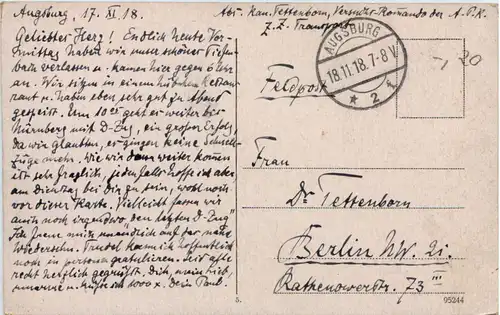 Augsburg, 17. XI. 18.
Geliebtes Herz! Endlich heute Vor-
mittag haben wir unser schönes
verlassen u. kamen hier gegen 6 Uhr
an. Wir sitzen in einem hübschen Restau-
rant u. haben eben sehr gut zu Abend
gespeist. Um 10 geht es weiter bis
Nürnberg mit D-Zug, ein großer Erfolg,
da wir glaubten, es gingen keine Schnell-
züge mehr. Wie wir dann weiter kommen
ist sehr fraglich, jedenfalls hoffe ich aber
am Dienstag bei Dir zu sein, wohl noch
vor dieser Karte. Vielleicht fassen wir
auch noch irgendwo den letzten D-Zug"
Ich freue mich unendlich auf das nahe
Wiedersehn. Trudel kann ich hoffentlich
noch in persona gratulieren. Sei aber
recht herzlich gegrüßt, Dich, mein Lieb,
1000 x. Dein Paul.
Abs. Tettenborn, der A.P.K.
z. Z. Transport
Feldpost
AUGSBURG
18.11.18.7-8V.
* 2 f
20
Frau
Dr Tettenborn
Berlin NW. 21.
Rathenowerstr. 73 III
5.
95244